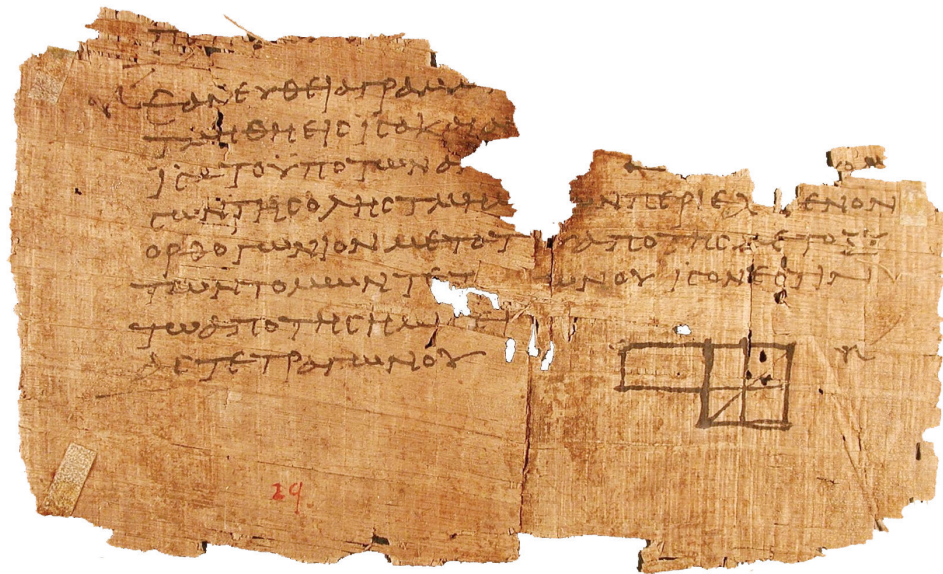 ΕΑΝ ΕΥΘΕΙΑ ΓΡΑΜΜ
ΤΜΗΘΗ ΕΙC ΙCΑ ΚΑΙ Α
ΙCΑ ΤΟ ΥΠΟ ΤΩΝ Α
CΩΝ ΤΗC ΟΛΗC ΤΜΗΜ ΩΝ ΠΕΡΙΕΧ ΕΝΟΝ
ΟΡΘΟΓΩΝΙΟΝ ΜΕΤΑ Τ ΑΠΟ ΤΗC ΜΕΤΟΞΥ
ΤΩΝ ΤΟΜΩΝ ΤΕΤ ΩΝΟΥ ΙCΟΝ ΕCΤΙΝ
ΤΩ ΑΠΟ ΤΗC ΗΜΙCΕΙ
ΑC ΤΕΤΡΑΓΩΝΟΥ
29.